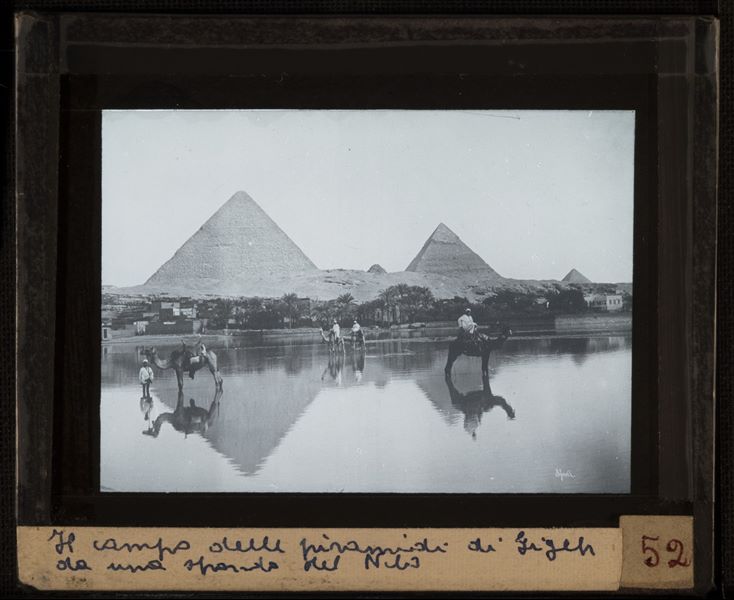 Il campo delle piramidi di Gizeh
da una sponda del Nilo
52